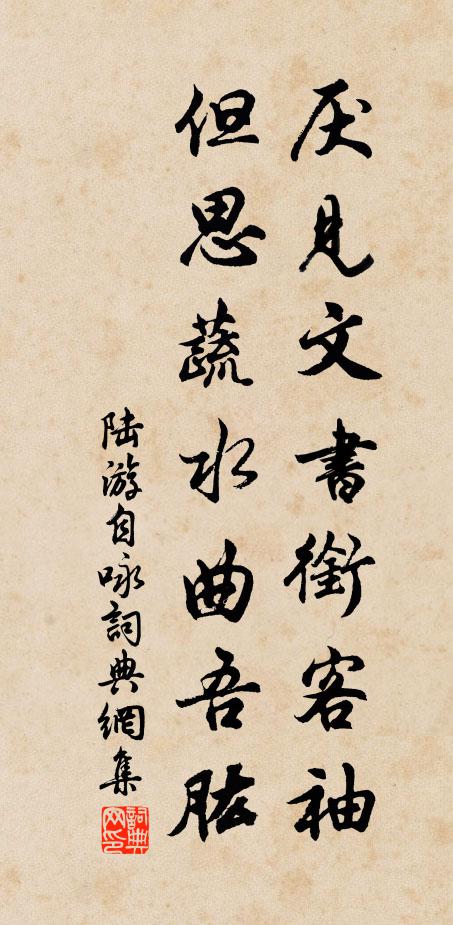 厌見文書銜客袖
但思蔬水曲吾肱
陆游自咏詞典網集
詞典网印